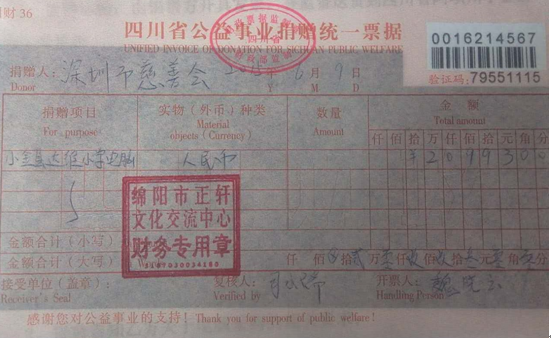 财 36
四川省公益事业捐赠统一票据
UNIFIED INVOICE OF DONATION FOR SICHUAN PUBLIC WELFARE
0016214567
验证码: 79551115
捐赠人: 深圳市慈善会 6 月 9 日
Donor Y M D
捐赠项目 实物（外币）种类 数量 金额
For purpose Material objects (Currency) Amount Total amount
仟 佰 拾 万 仟 佰 拾 元 角 分
人民币 ¥ 2 0 9 9 3 0 0
绵阳市正轩
文化交流中心
财务专用章
金额合计（小写）
金额合计（大写） 仟 佰 拾 贰 万 零 仟 玖 佰 玖 拾 叁 元 零 角 零 分
接受单位（盖章）: 复核人: 开票人:
Receiver's Seal Verified by Handling Person
感谢您对公益事业的支持! Thank you for support of public welfare!